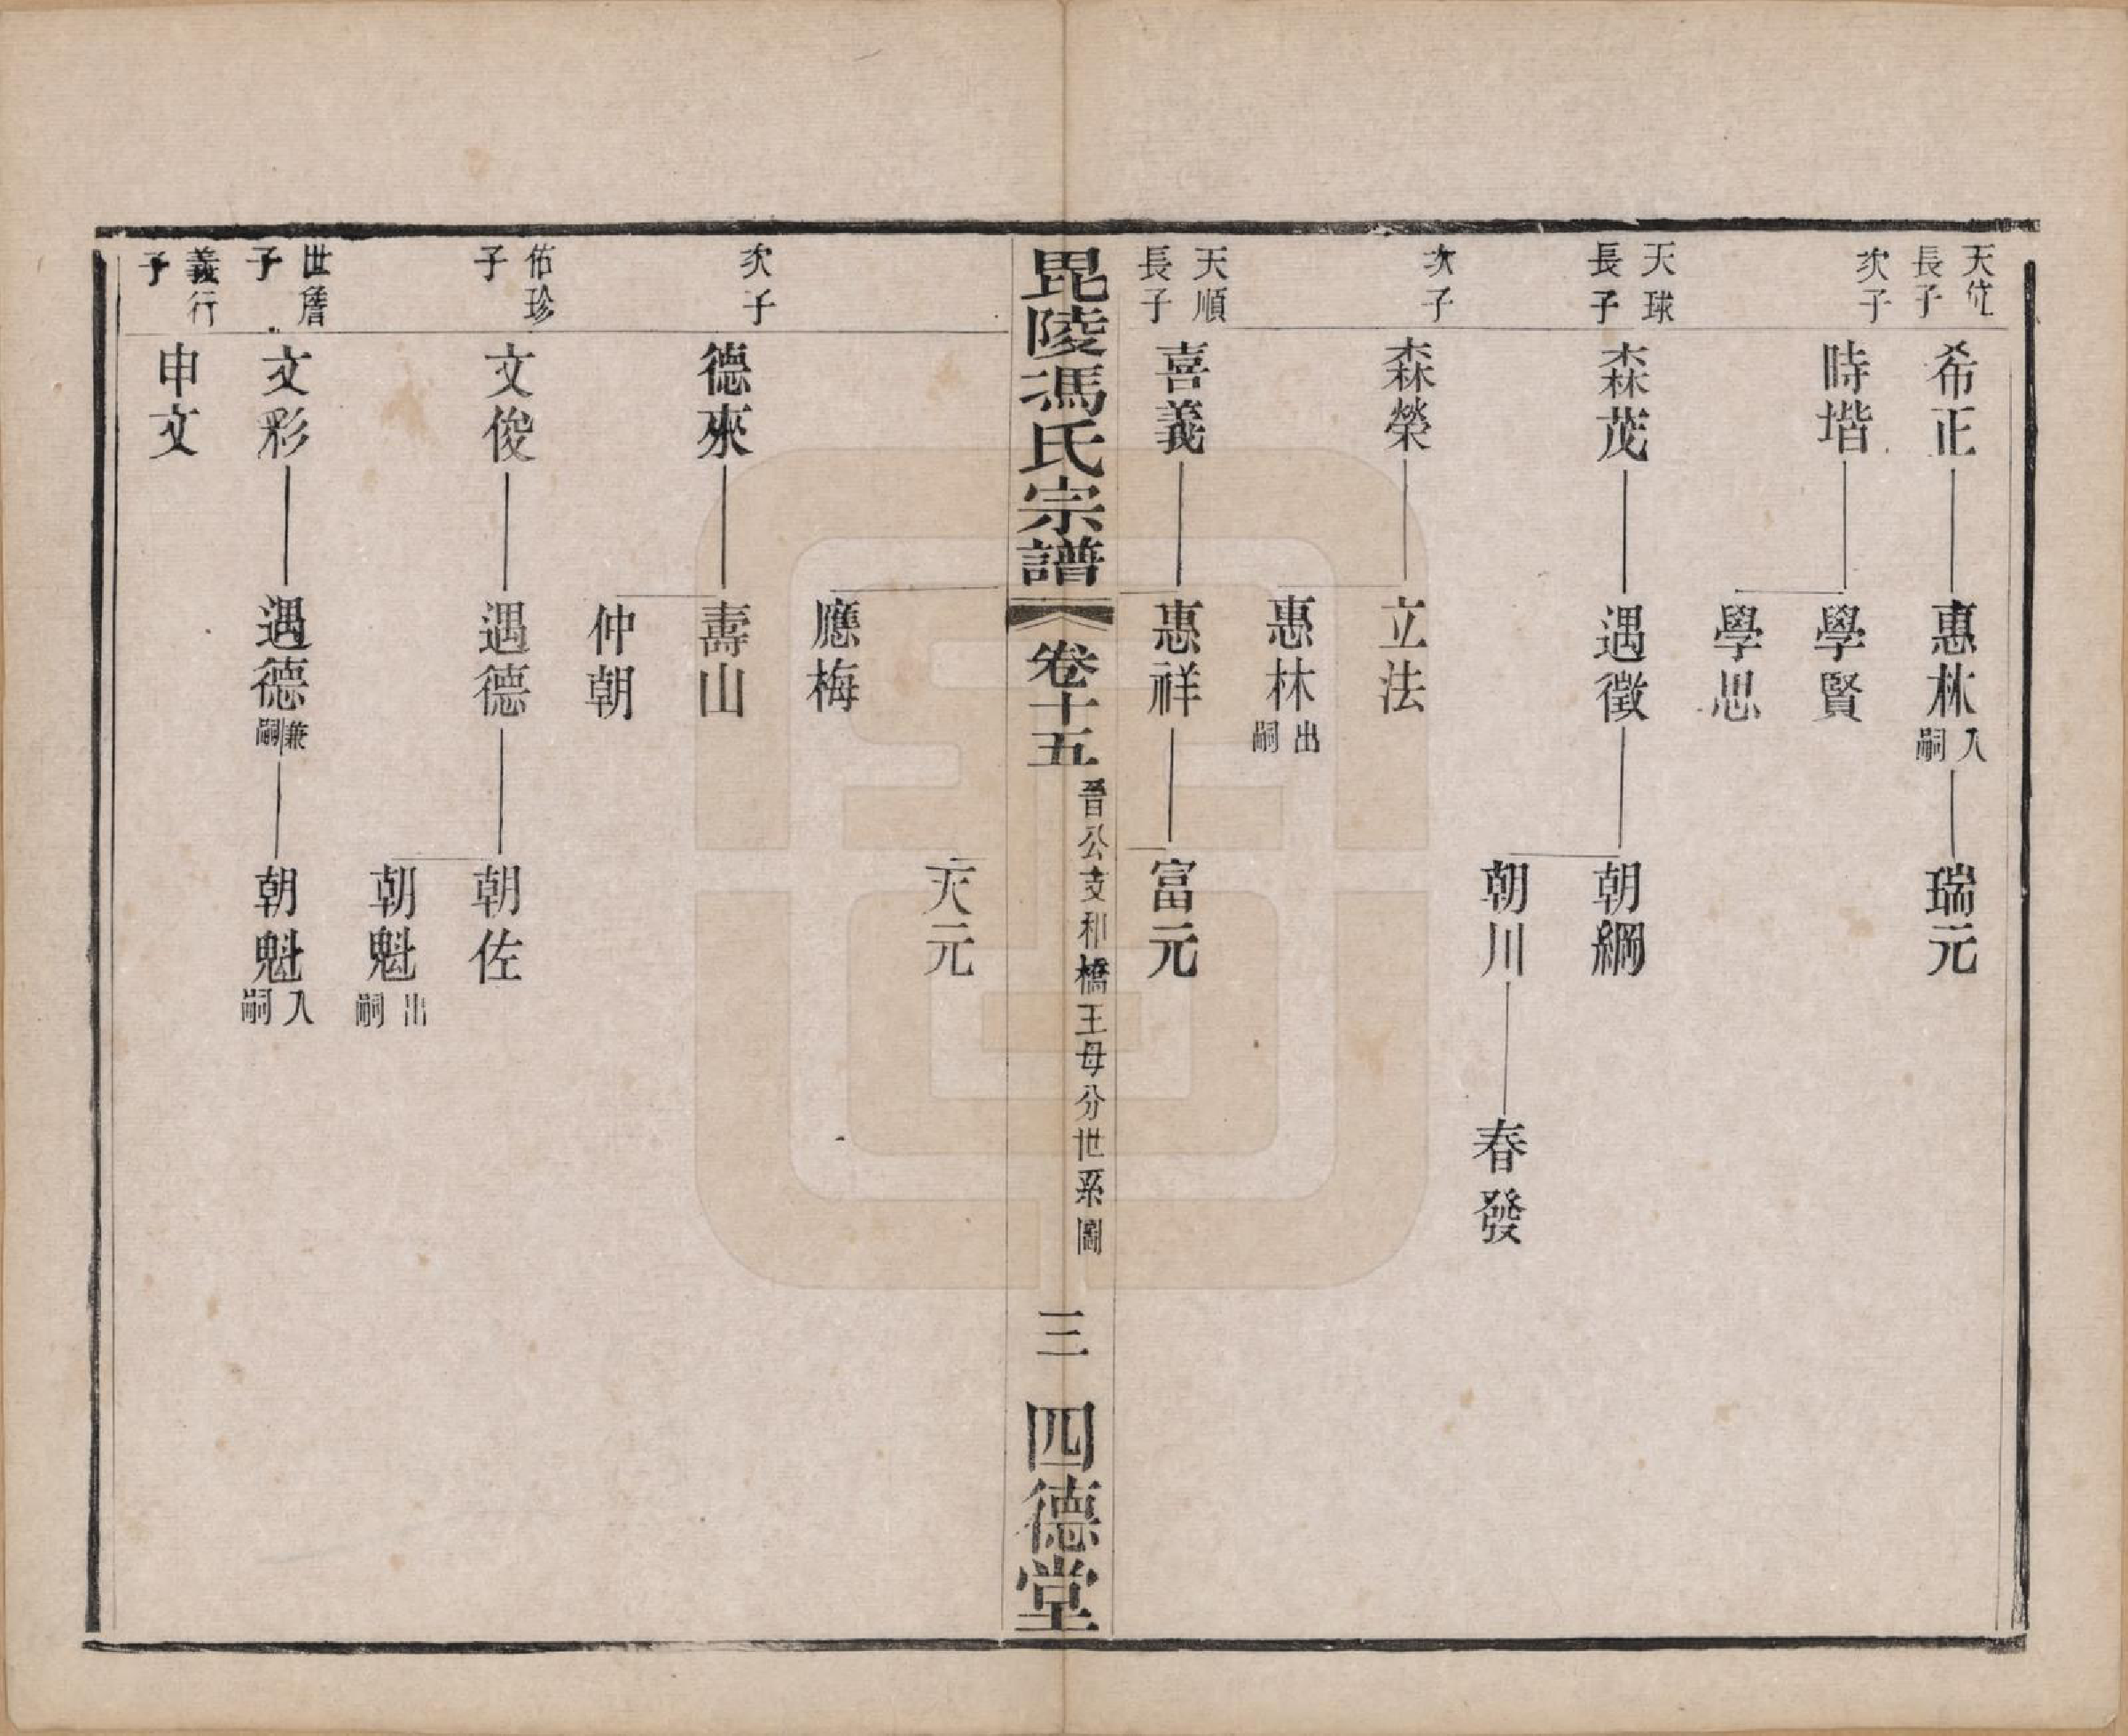 天位長子
希正
惠林入嗣
瑞元
次子
時堦
學賢
學思
天球長子
森茂
遇徵
朝綱
朝川
春發
次子
森榮
立法
惠林出嗣
天順長子
喜義
惠祥
富元
毘陵馮氏宗譜
卷十五
晉公支和橋王母分世系圖
三
四德堂
天元
應梅
次子
德來
壽山
仲朝
佑珍子
文俊
遇德
朝佐
朝魁出嗣
世詹子
文彩
遇德兼嗣
朝魁入嗣
義行子
申文